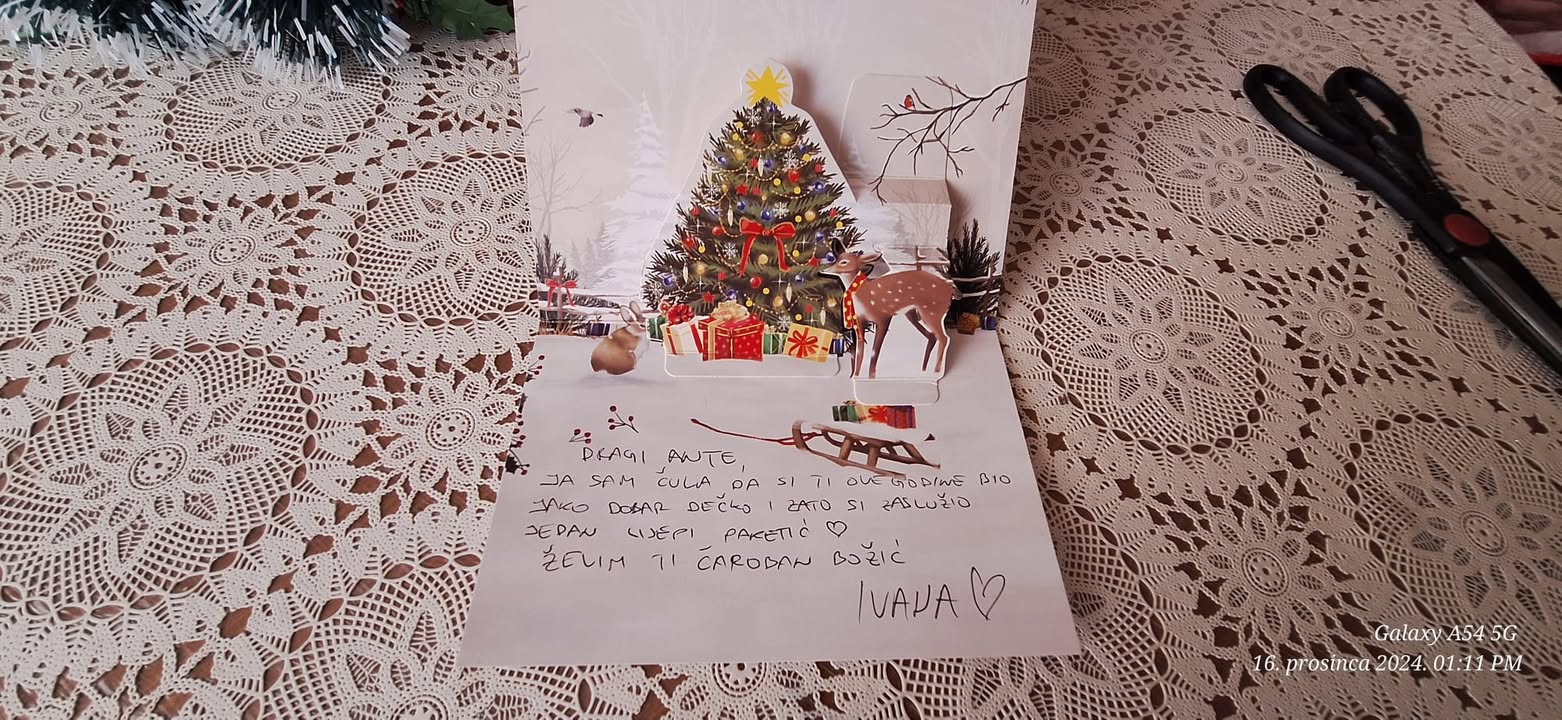 DRAGI ANTE,
JA SAM ČULA DA SI TI OVE GODINE BIO
JAKO DOBAR DEČKO I ZATO SI ZASLUŽIO
JEDAN LIJEPI PAKETIĆ ♡
ŽELIM TI ČAROBAN BOŽIĆ
IVANA ♡
Galaxy A54 5G
16. prosinca 2024. 01:11 PM